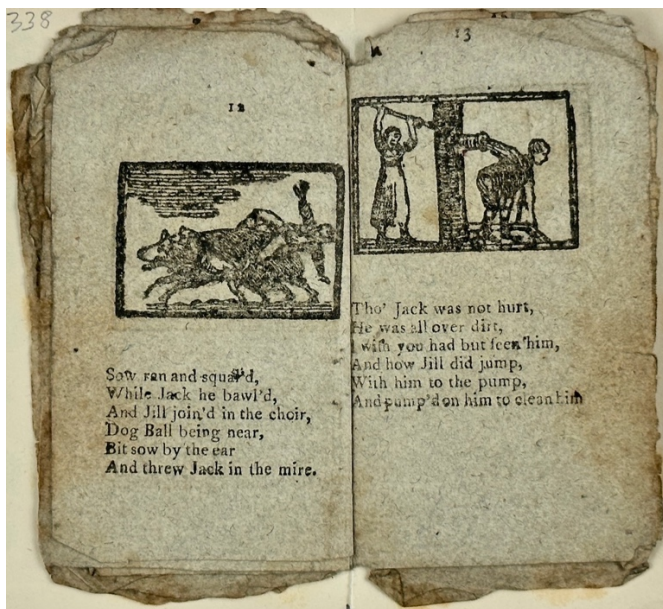 338
12
Sow ran and squal'd,
While Jack he bawl'd,
And Jill join'd in the choir,
Dog Ball being near,
Bit sow by the ear
And threw Jack in the mire.
13
Tho' Jack was not hurt,
He was all over dirt,
I wiſh you had but ſeen him,
And how Jill did jump,
With him to the pump,
And pump'd on him to clean him